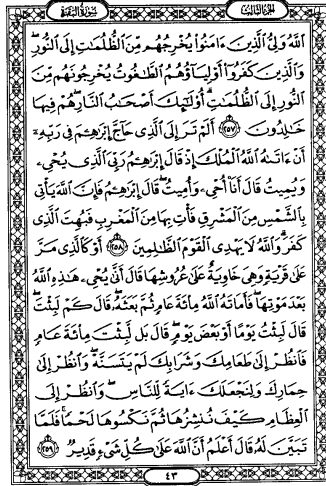 الجزء الثالث
سورة البقرة
ٱللَّهُ وَلِيُّ ٱلَّذِينَ ءَامَنُوا۟ يُخْرِجُهُم مِّنَ ٱلظُّلُمَـٰتِ إِلَى ٱلنُّورِ ۖ
وَٱلَّذِينَ كَفَرُوٓا۟ أَوْلِيَآؤُهُمُ ٱلطَّـٰغُوتُ يُخْرِجُونَهُم مِّنَ
ٱلنُّورِ إِلَى ٱلظُّلُمَـٰتِ ۗ أُو۟لَـٰٓئِكَ أَصْحَـٰبُ ٱلنَّارِ ۖ هُمْ فِيهَا
خَـٰلِدُونَ ﴿٢٥٧﴾ أَلَمْ تَرَ إِلَى ٱلَّذِى حَآجَّ إِبْرَٰهِـۧمَ فِى رَبِّهِۦٓ
أَنْ ءَاتَىٰهُ ٱللَّهُ ٱلْمُلْكَ إِذْ قَالَ إِبْرَٰهِـۧمُ رَبِّىَ ٱلَّذِى يُحْىِۦ
وَيُمِيتُ قَالَ أَنَا۠ أُحْىِۦ وَأُمِيتُ ۖ قَالَ إِبْرَٰهِـۧمُ فَإِنَّ ٱللَّهَ يَأْتِى
بِٱلشَّمْسِ مِنَ ٱلْمَشْرِقِ فَأْتِ بِهَا مِنَ ٱلْمَغْرِبِ فَبُهِتَ ٱلَّذِى
كَفَرَ ۗ وَٱللَّهُ لَا يَهْدِى ٱلْقَوْمَ ٱلظَّـٰلِمِينَ ﴿٢٥٨﴾ أَوْ كَٱلَّذِى مَرَّ
عَلَىٰ قَرْيَةٍ وَهِىَ خَاوِيَةٌ عَلَىٰ عُرُوشِهَا قَالَ أَنَّىٰ يُحْىِۦ هَـٰذِهِ ٱللَّهُ
بَعْدَ مَوْتِهَا ۖ فَأَمَاتَهُ ٱللَّهُ مِا۟ئَةَ عَامٍ ثُمَّ بَعَثَهُۥ ۖ قَالَ كَمْ لَبِثْتَ ۖ
قَالَ لَبِثْتُ يَوْمًا أَوْ بَعْضَ يَوْمٍ ۖ قَالَ بَل لَّبِثْتَ مِا۟ئَةَ عَامٍ
فَٱنظُرْ إِلَىٰ طَعَامِكَ وَشَرَابِكَ لَمْ يَتَسَنَّهْ ۖ وَٱنظُرْ إِلَىٰ
حِمَارِكَ وَلِنَجْعَلَكَ ءَايَةً لِّلنَّاسِ ۖ وَٱنظُرْ إِلَى
ٱلْعِظَامِ كَيْفَ نُنشِزُهَا ثُمَّ نَكْسُوهَا لَحْمًا ۚ فَلَمَّا
تَبَيَّنَ لَهُۥ قَالَ أَعْلَمُ أَنَّ ٱللَّهَ عَلَىٰ كُلِّ شَىْءٍ قَدِيرٌ ﴿٢٥٩﴾
٤٣